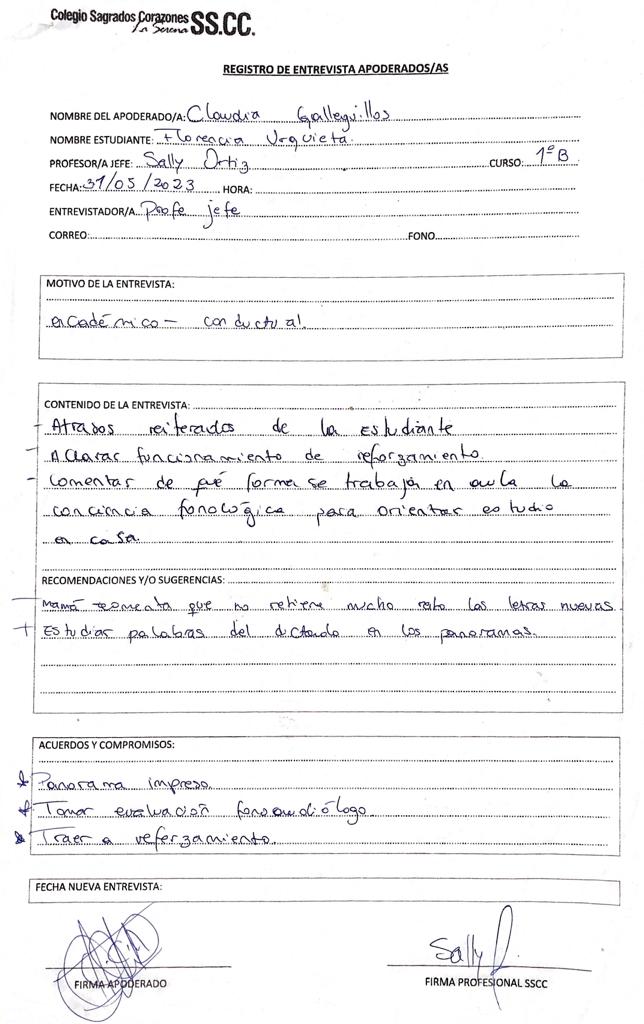 Colegio Sagrados Corazones SS.CC.
La Serena
REGISTRO DE ENTREVISTA APODERADOS/AS
NOMBRE DEL APODERADO/A: Claudia Galleguillos
NOMBRE ESTUDIANTE: Florencia Urquieta
PROFESOR/A JEFE: Sally Ortiz CURSO: 1º B
FECHA: 31/05/2023 HORA:
ENTREVISTADOR/A Profe jefe
CORREO: FONO
MOTIVO DE LA ENTREVISTA:
académico - conductual
CONTENIDO DE LA ENTREVISTA:
- Atrasos reiterados de la Estudiante
- Aclarar funcionamiento de reforzamiento
- Comentar de qué forma se trabaja en aula la
conciencia fonológica para orientar estudio
en casa.
RECOMENDACIONES Y/O SUGERENCIAS:
- Mamá comenta que no retiene mucho rato las letras nuevas.
+ Estudiar palabras del dictado en los panoramas.
ACUERDOS Y COMPROMISOS:
* Panorama impreso
* Tomar evaluación fonoaudiólogo
* Traer a reforzamiento
FECHA NUEVA ENTREVISTA:
Sally
FIRMA APODERADO FIRMA PROFESIONAL SSCC